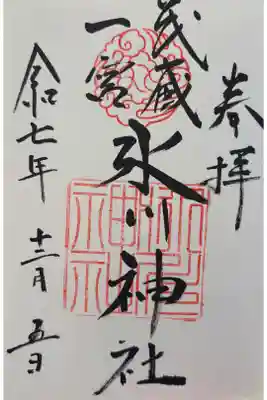 奉拝
武蔵
一宮
氷川神社
令和七年
十二月
五日